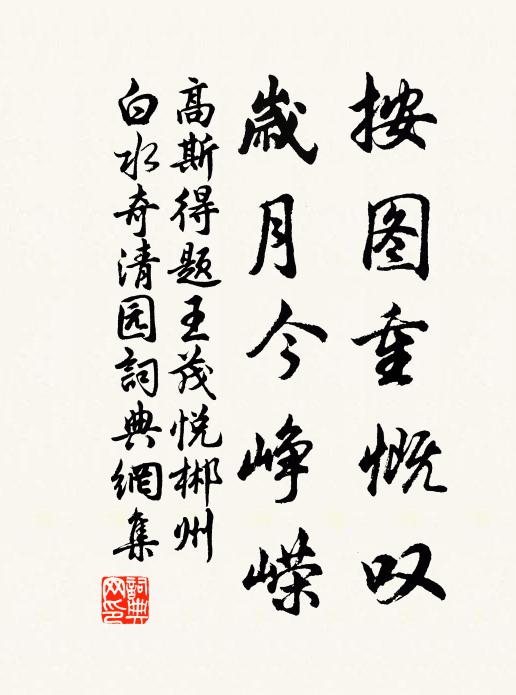 按图重慨叹
歳月今峥嵘
高斯得题王茂悦郴州
白水奇清园詞典網集
詞典网印